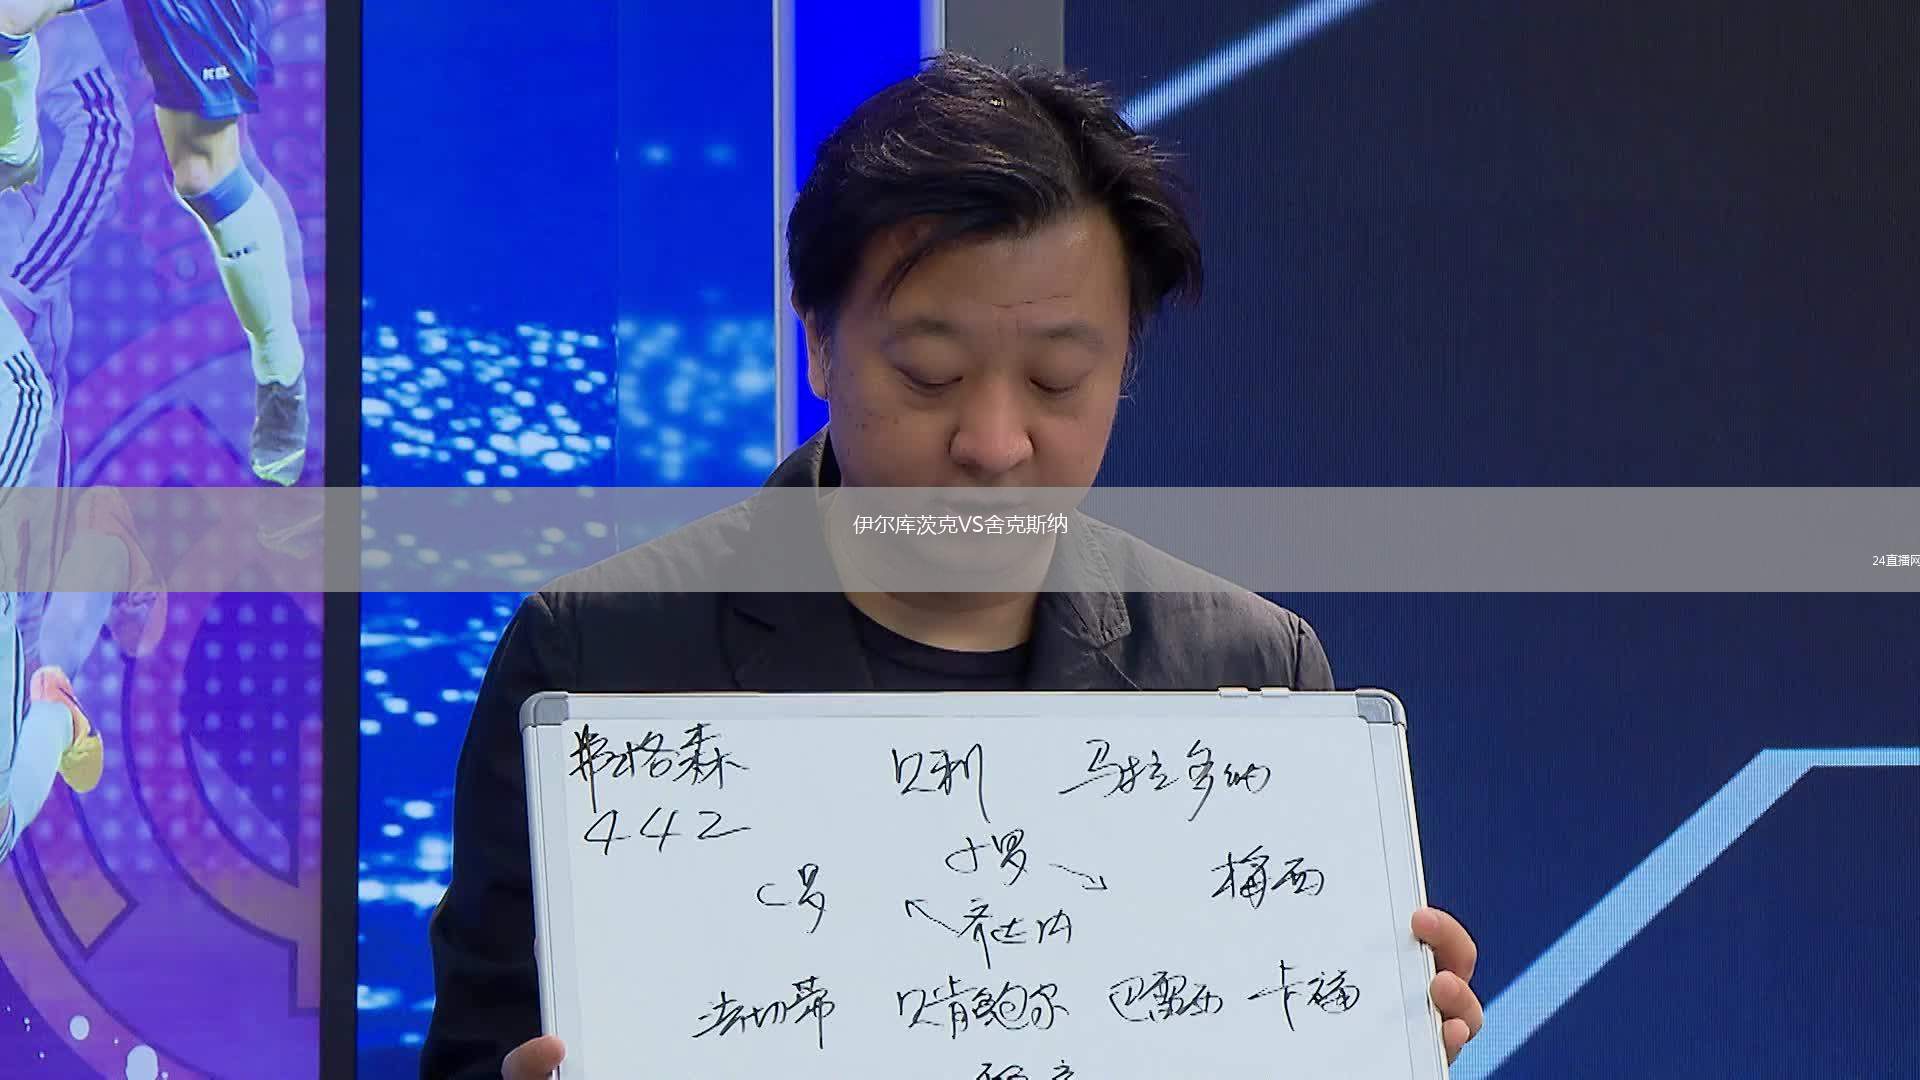 伊尔库茨克VS舍克斯纳
24直播网
弗格森 贝利 马拉多纳
442
小罗
C罗 梅西
齐达内
法切蒂 贝肯鲍尔 巴雷西 卡福